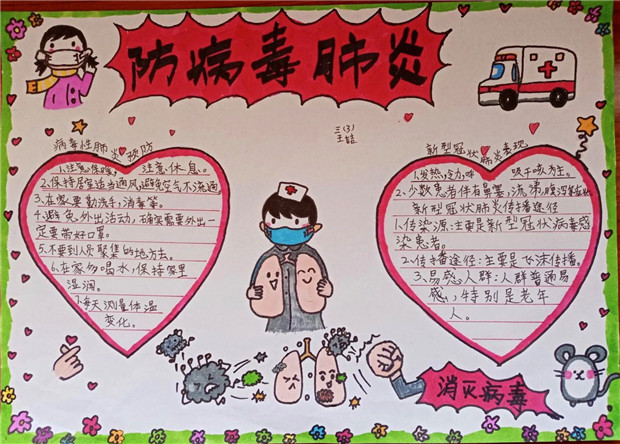 防病毒肺炎
三(3)
王皓
病毒性肺炎预防
1.注意保暖, 注意休息。
2.保持居室适当通风,避免空气不流通
3.在家要勤洗手,消毒等。
4.避免外出活动,确实需要外出一
定要带好口罩。
5.不要到人员聚集的地方去。
6.在家勿喝水,保持家里
湿润。
7.每天测量体温
变化。
新型冠状肺炎表现
1.发热,
2.少数患者伴有鼻塞,流涕,
新型冠状肺炎传播途径
1.传染源:主要是新型冠状病毒感
染患者。
2.传播途径:主要是飞沫传播。
3.易感人群:人群普通易
感,特别是老年
人。
消灭病毒